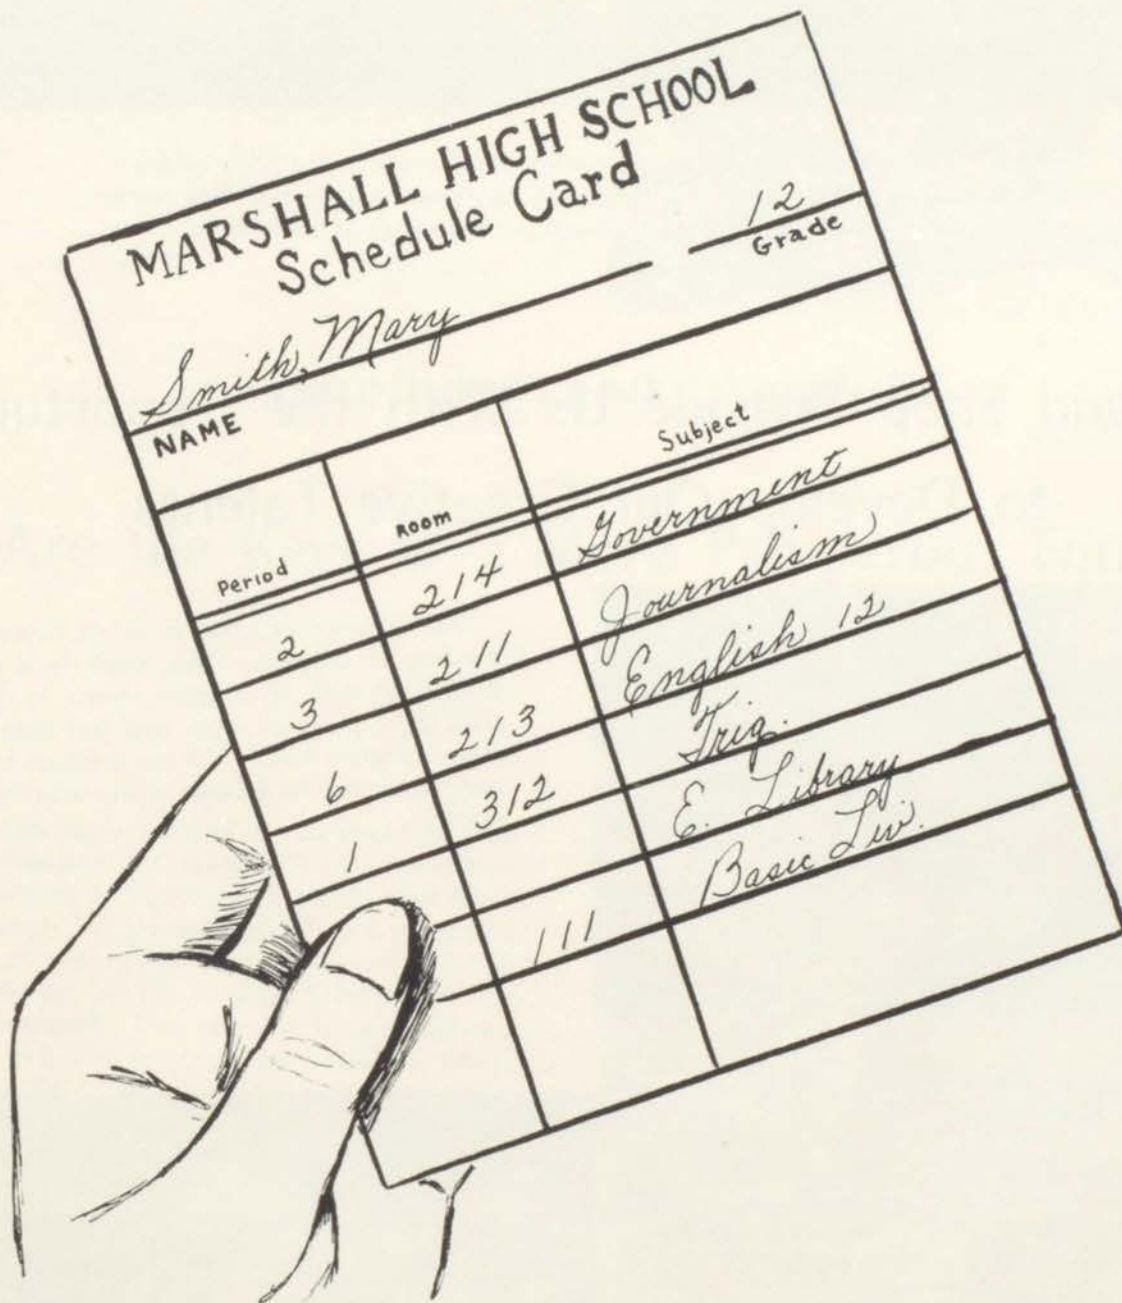 MARSHALL HIGH SCHOOL
Schedule Card
12
Grade
Smith, Mary
NAME
Period Room Subject
2 214 Government
3 211 Journalism
6 213 English 12
1 312 Trig.
E. Library
111 Basic Liv.